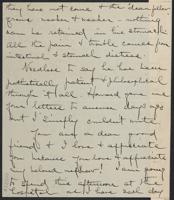 they have not come & the dear fellow
grows weaker & weaker - nothing
can be retained in his stomach
all the pain & trouble comes from
intestinal & stomach distress.
Needless to say he has been
pathetically patient & philosophical
through it all. Howard gave me
your letters to answer days ago
but I simply couldn't write.
You are a dear good
friend & I love & appreciate
you because you love & appreciate
my beloved nephew! I am going
to spend this afternoon at the
hospital as I have each day